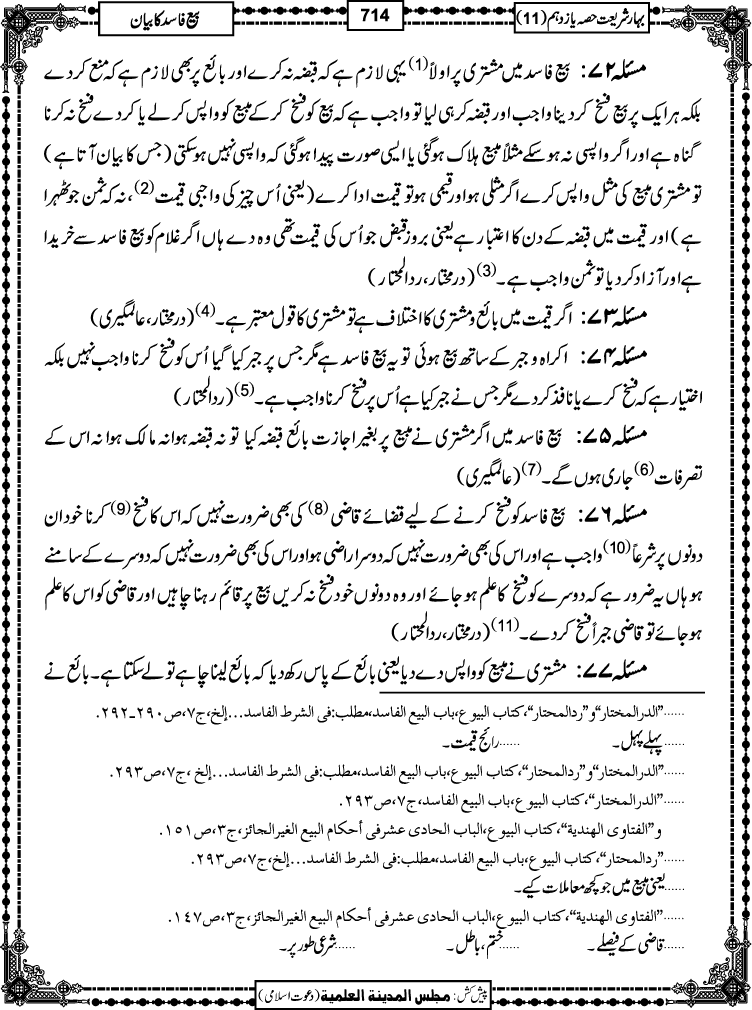 بہارِشریعت حصہ یازدہم (11)
714
بیع فاسد کا بیان
مسئلہ ۷۲: بیع فاسد میں مشتری پر اولاً(1) یہی لازم ہے کہ قبضہ نہ کرے اور بائع پر بھی لازم ہے کہ منع کردے
بلکہ ہر ایک پر بیع فسخ کر دینا واجب اور قبضہ کر ہی لیا تو واجب ہے کہ بیع کو فسخ کر کے مبیع کو واپس کر لے یا کر دے فسخ نہ کرنا
گناہ ہے اور اگر واپسی نہ ہو سکے مثلاً مبیع ہلاک ہو گیا یا ایسی صورت پیدا ہو گئی کہ واپسی نہیں ہو سکتی (جس کا بیان آتا ہے)
تو مشتری مبیع کی مثل واپس کرے اگر مثلی ہو اور قیمی ہو تو قیمت ادا کرے (یعنی اُس چیز کی واجبی قیمت(2)، نہ کہ ثمن جو ٹھہرا
ہے) اور قیمت میں قبضہ کے دن کا اعتبار ہے یعنی بروز قبض جو اُس کی قیمت تھی وہ دے ہاں اگر غلام کو بیع فاسد سے خریدا
ہے اور آزاد کر دیا تو ثمن واجب ہے۔(3) (درمختار، ردالمحتار)
مسئلہ ۷۳: اگر قیمت میں بائع و مشتری کا اختلاف ہے تو مشتری کا قول معتبر ہے۔(4) (درمختار، عالمگیری)
مسئلہ ۷۴: اکراہ و جبر کے ساتھ بیع ہوئی تو یہ بیع فاسد ہے مگر جس پر جبر کیا گیا اُس کو فسخ کرنا واجب نہیں بلکہ
اختیار ہے کہ فسخ کرے یا نافذ کر دے مگر جس نے جبر کیا ہے اُس پر فسخ کرنا واجب ہے۔(5) (ردالمحتار)
مسئلہ ۷۵: بیع فاسد میں اگر مشتری نے مبیع پر بغیر اجازت بائع قبضہ کیا تو نہ قبضہ ہوا نہ مالک ہوا نہ اس کے
تصرفات(6) جاری ہوں گے۔(7) (عالمگیری)
مسئلہ ۷۶: بیع فاسد کو فسخ کرنے کے لیے قضائے قاضی(8) کی بھی ضرورت نہیں کہ اس کا فسخ(9) کرنا خود ان
دونوں پر شرعاً(10) واجب ہے اور اس کی بھی ضرورت نہیں کہ دوسرا راضی ہو اور اس کی بھی ضرورت نہیں کہ دوسرے کے سامنے
ہو ہاں یہ ضرور ہے کہ دوسرے کو فسخ کا علم ہو جائے اور وہ دونوں خود فسخ نہ کریں بیع پر قائم رہنا چاہیں اور قاضی کو اس کا علم
ہو جائے تو قاضی جبراً فسخ کر دے۔(11) (درمختار، ردالمحتار)
مسئلہ ۷۷: مشتری نے مبیع کو واپس دے دیا یعنی بائع کے پاس رکھ دیا کہ بائع لینا چاہے تو لے سکتا ہے۔ بائع نے
......"الدرالمختار"و"ردالمحتار"، کتاب البیوع، باب البیع الفاسد، مطلب: فی الشرط الفاسد...إلخ، ج۷، ص۲۹۰۔۲۹۲.
......پہلے پہل۔ ......رائج قیمت۔
......"الدرالمختار"و"ردالمحتار"، کتاب البیوع، باب البیع الفاسد، مطلب: فی الشرط الفاسد...إلخ، ج۷، ص۲۹۳.
......"الدرالمختار"، کتاب البیوع، باب البیع الفاسد، ج۷، ص۲۹۳.
و"الفتاوی الھندیۃ"، کتاب البیوع، الباب الحادی عشر فی أحکام البیع الغیر الجائز، ج۳، ص۱۵۱.
......"ردالمحتار"، کتاب البیوع، باب البیع الفاسد، مطلب: فی الشرط الفاسد...إلخ، ج۷، ص۲۹۳.
......یعنی مبیع میں جو کچھ معاملات کیے۔
......"الفتاوی الھندیۃ"، کتاب البیوع، الباب الحادی عشر فی أحکام البیع الغیر الجائز، ج۳، ص۱۴۷.
......قاضی کے فیصلے۔ ......ختم، باطل۔ ......شرعی طور پر۔
پیش کش: مجلس المدینة العلمیة (دعوتِ اسلامی)